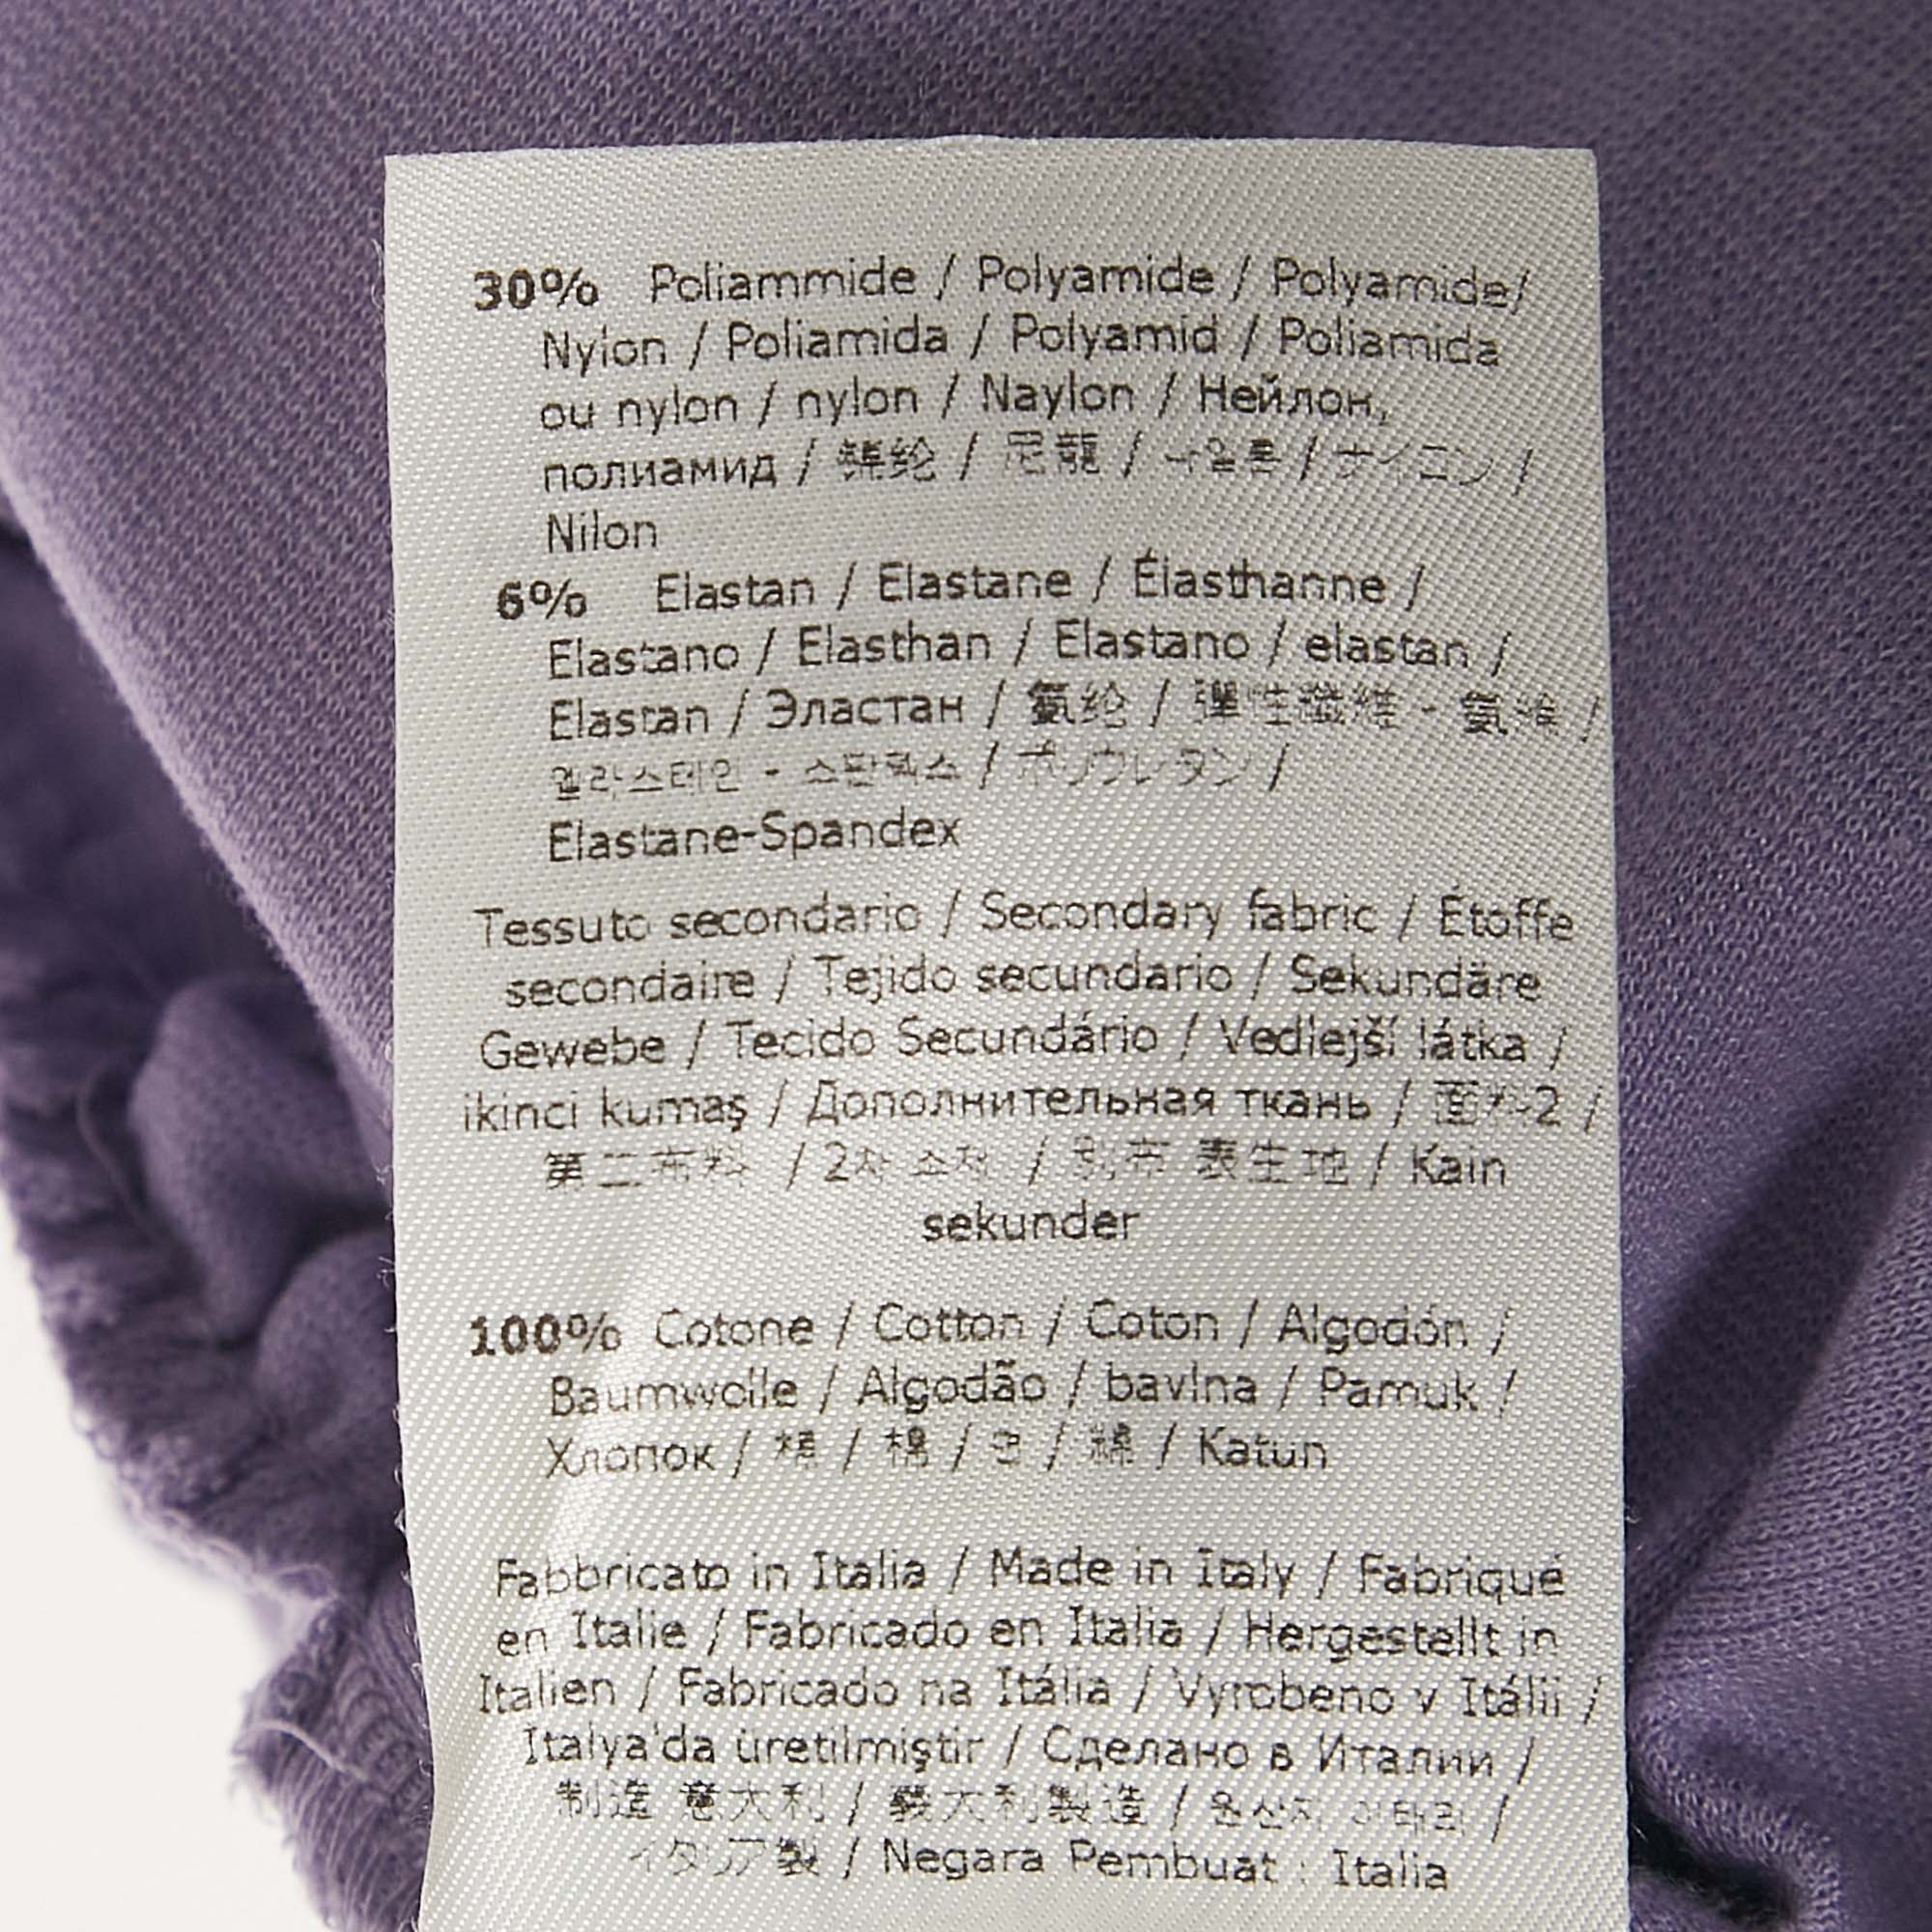 30% Poliammide / Polyamide / Polyamide/
Nylon / Poliamida / Polyamid / Poliamida
ou nylon / nylon / Naylon / Нейлон,
полиамид / 锦纶 / 尼龍 / 나일론 / ナイロン /
Nilon
6% Elastan / Elastane / Élasthanne /
Elastano / Elasthan / Elastano / elastan /
Elastan / Эластан / 氨纶 / 彈性纖維 - 氨綸 /
엘라스테인 - 스판덱스 / ポリウレタン /
Elastane-Spandex
Tessuto secondario / Secondary fabric / Étoffe
secondaire / Tejido secundario / Sekundäre
Gewebe / Tecido Secundário / Vedlejší látka /
ikinci kumaş / Дополнительная ткань / 面料2 /
第二布料 / 2차 소재 / 別布 表生地 / Kain
sekunder
100% Cotone / Cotton / Coton / Algodón /
Baumwolle / Algodão / bavlna / Pamuk /
Хлопок / 棉 / 棉 / 면 / 綿 / Katun
Fabbricato in Italia / Made in Italy / Fabriqué
en Italie / Fabricado en Italia / Hergestellt in
Italien / Fabricado na Itália / Vyrobeno v Itálii /
Italya'da üretilmiştir / Сделано в Италии /
制造 意大利 / 義大利製造 / 원산지 이태리 /
イタリア製 / Negara Pembuat : Italia